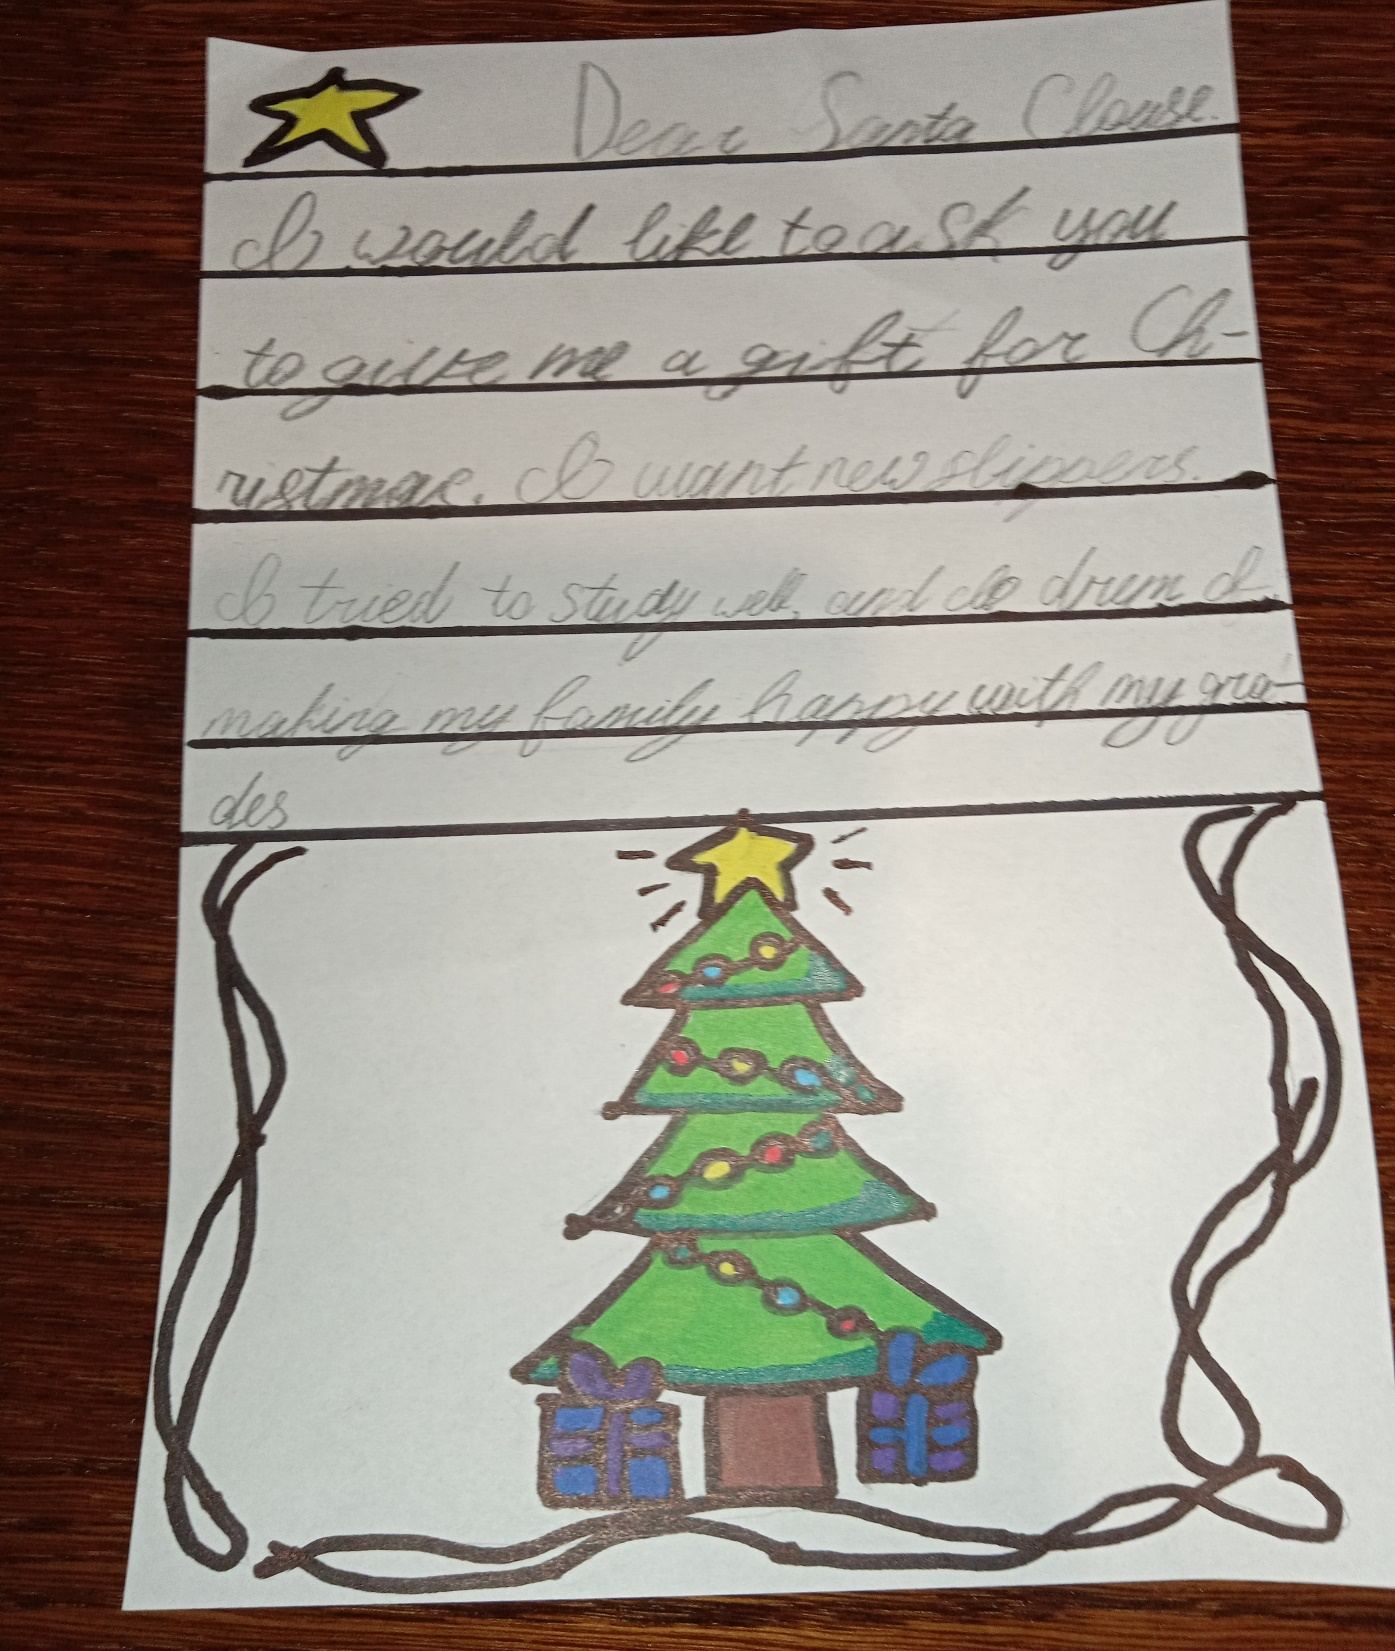 Dear Santa Clouse.
I would like to ask you
to give me a gift for Ch-
ristmas. I want new slippers.
I tried to study well, and do drum I
making my family happy with my gra-
des